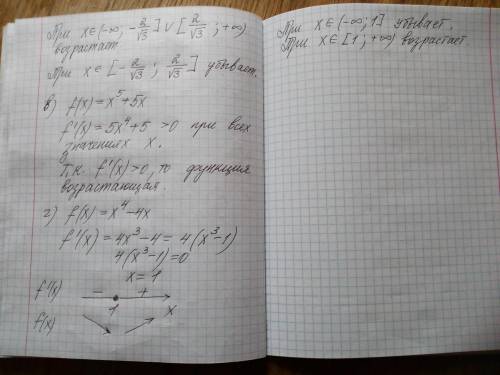 При x∈(-∞; -2/√3] ∪ [2/√3; +∞)
возрастает
При x∈ [-2/√3; 2/√3] убывает.
в) f(x)=x⁵+5x
f'(x)=5x⁴+5 >0 при всех
значениях x.
Т.к. f'(x)>0, то функция
возрастающая
г) f(x)=x⁴-4x
f'(x)=4x³-4=4(x³-1)
4(x³-1)=0
x=1
f'(x) - +
1 x
f(x)
При x∈(-∞;1] убывает.
При x∈[1;+∞) возрастает